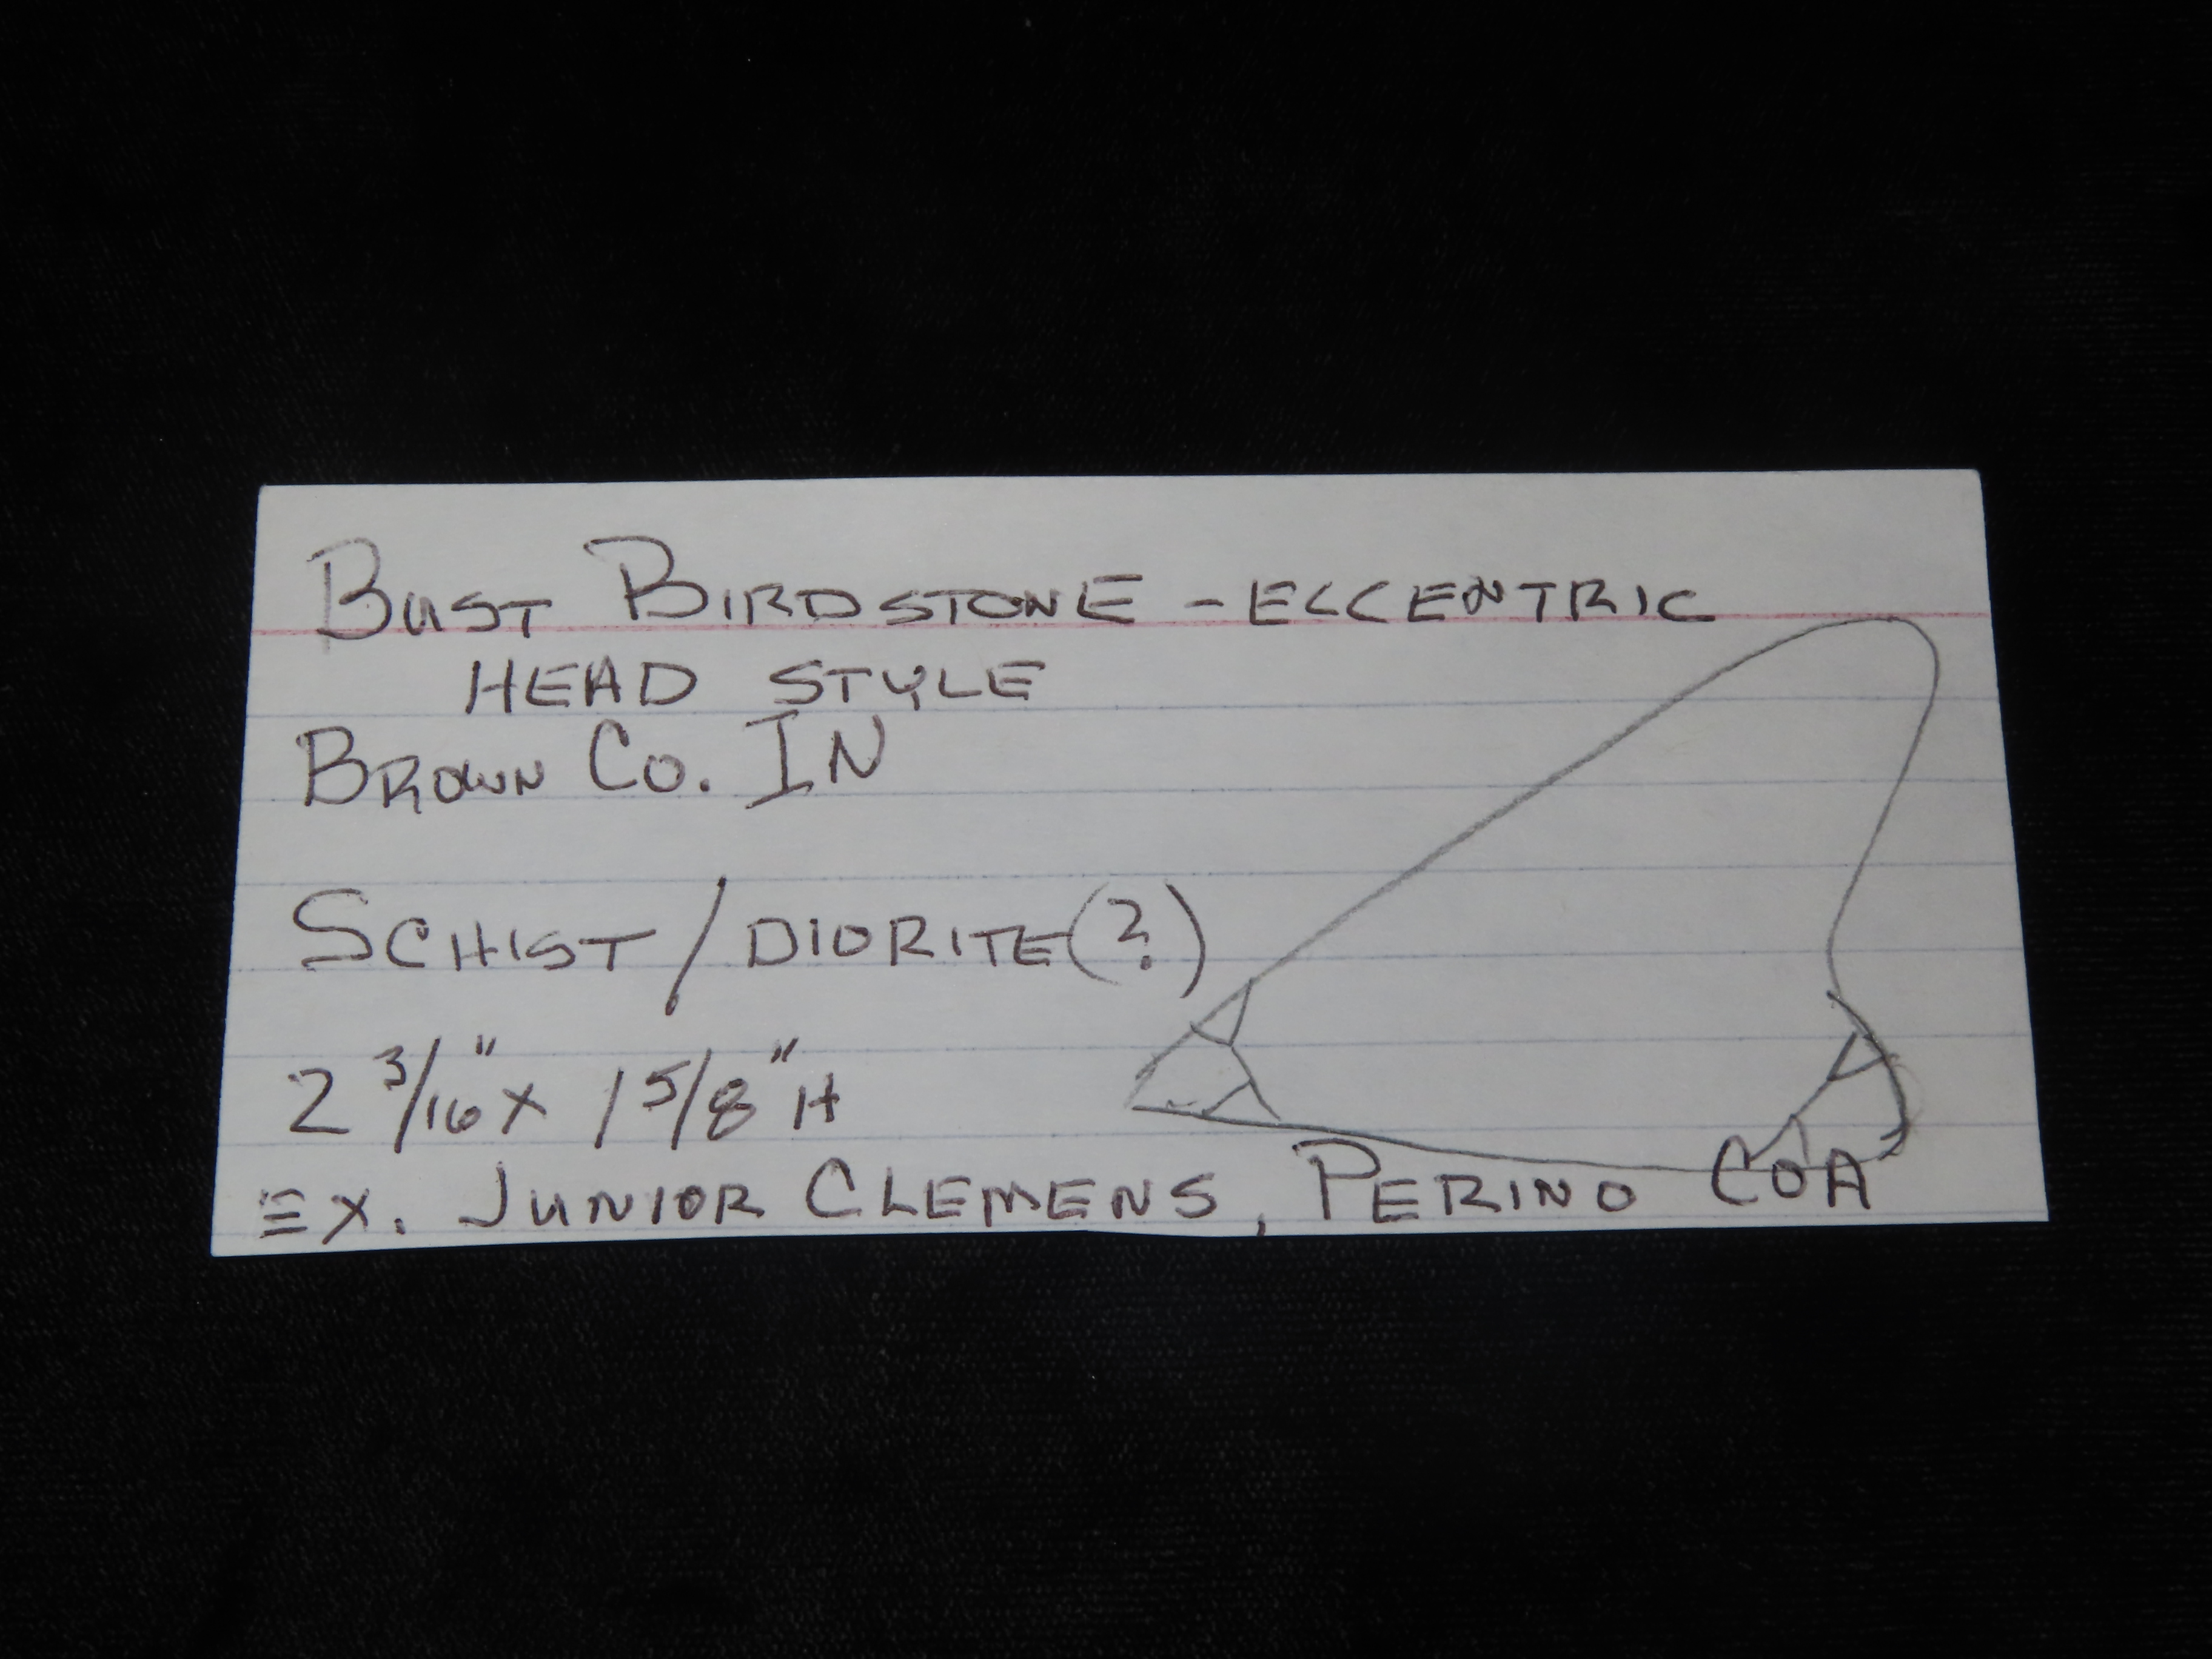 BUST BIRDSTONE - ECCENTRIC
HEAD STYLE
BROWN CO. IN
SCHIST / DIORITE (?)
2 3/16" x 1 5/8" H
EX. JUNIOR CLEMENS, PERINO COA